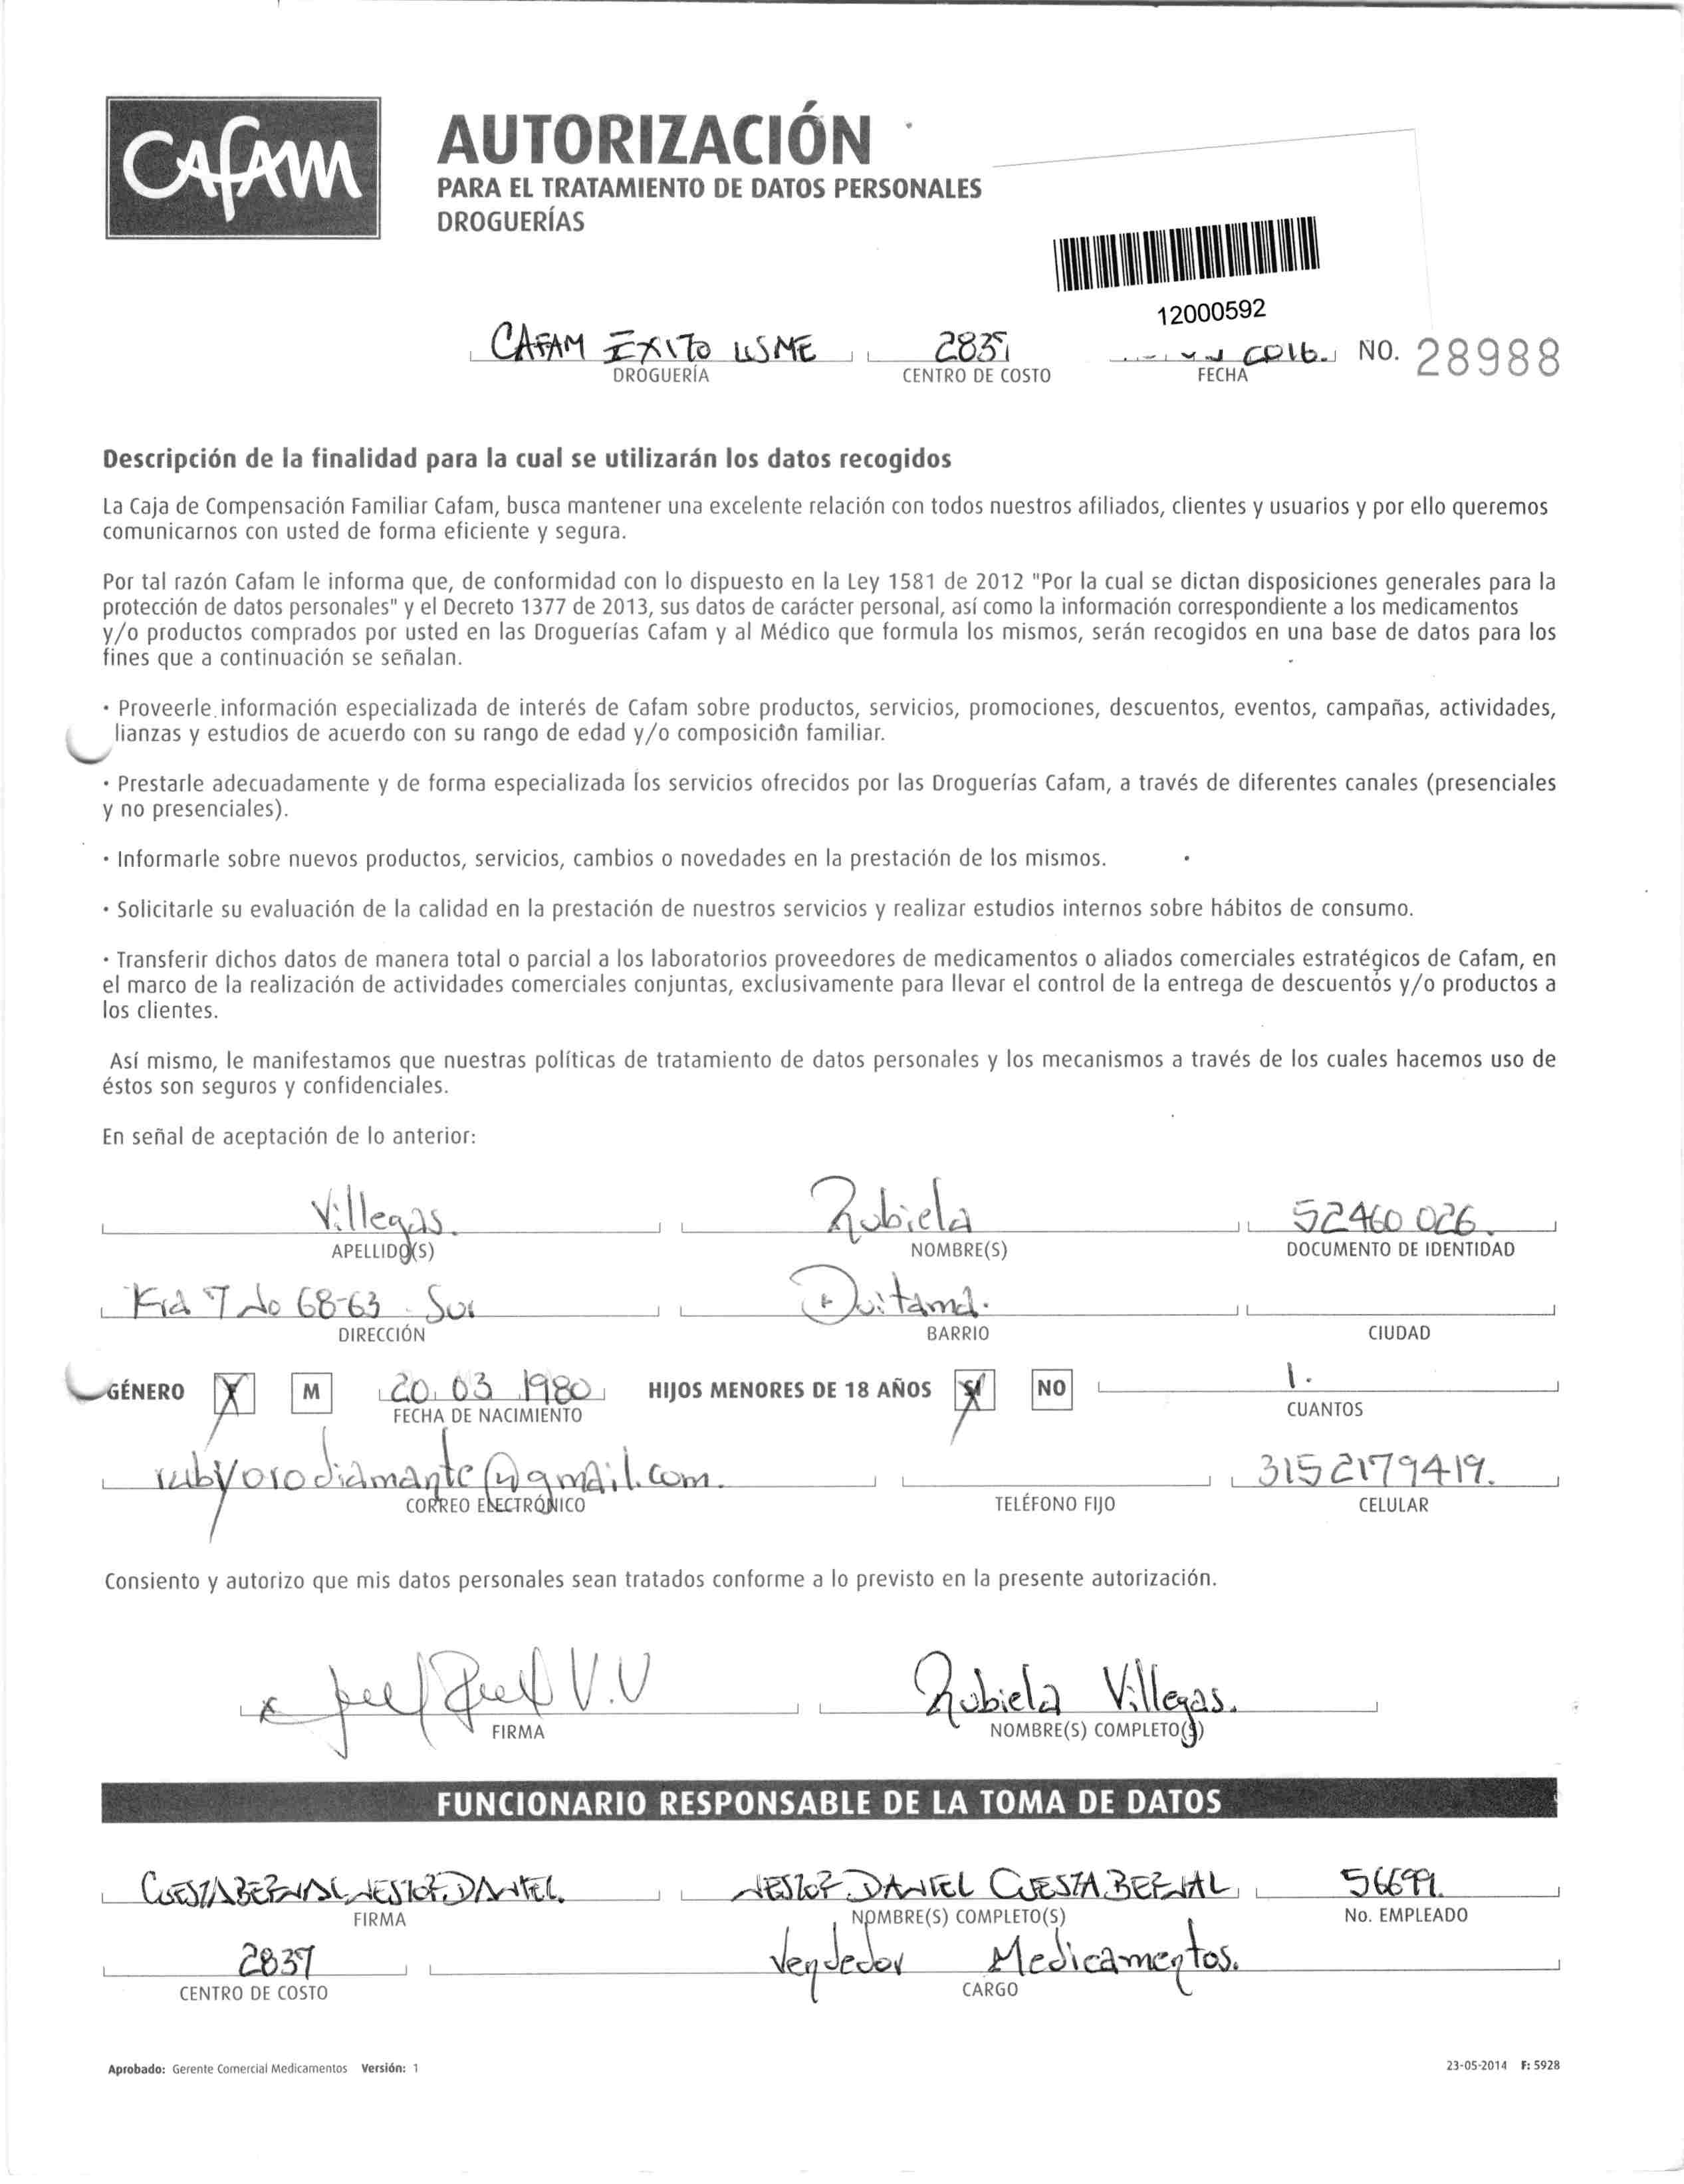 CAFAM
AUTORIZACIÓN
PARA EL TRATAMIENTO DE DATOS PERSONALES
DROGUERÍAS
12000592
CAFAM EXITO USME 2837 2016. NO. 28988
DROGUERÍA CENTRO DE COSTO FECHA
Descripción de la finalidad para la cual se utilizarán los datos recogidos
La Caja de Compensación Familiar Cafam, busca mantener una excelente relación con todos nuestros afiliados, clientes y usuarios y por ello queremos
comunicarnos con usted de forma eficiente y segura.
Por tal razón Cafam le informa que, de conformidad con lo dispuesto en la Ley 1581 de 2012 "Por la cual se dictan disposiciones generales para la
protección de datos personales" y el Decreto 1377 de 2013, sus datos de carácter personal, así como la información correspondiente a los medicamentos
y/o productos comprados por usted en las Droguerías Cafam y al Médico que formula los mismos, serán recogidos en una base de datos para los
fines que a continuación se señalan.
· Proveerle información especializada de interés de Cafam sobre productos, servicios, promociones, descuentos, eventos, campañas, actividades,
lianzas y estudios de acuerdo con su rango de edad y/o composición familiar.
· Prestarle adecuadamente y de forma especializada los servicios ofrecidos por las Droguerías Cafam, a través de diferentes canales (presenciales
y no presenciales).
· Informarle sobre nuevos productos, servicios, cambios o novedades en la prestación de los mismos.
· Solicitarle su evaluación de la calidad en la prestación de nuestros servicios y realizar estudios internos sobre hábitos de consumo.
· Transferir dichos datos de manera total o parcial a los laboratorios proveedores de medicamentos o aliados comerciales estratégicos de Cafam, en
el marco de la realización de actividades comerciales conjuntas, exclusivamente para llevar el control de la entrega de descuentos y/o productos a
los clientes.
Así mismo, le manifestamos que nuestras políticas de tratamiento de datos personales y los mecanismos a través de los cuales hacemos uso de
éstos son seguros y confidenciales.
En señal de aceptación de lo anterior:
Villegas. Rubiela 52460 026.
APELLIDO(S) NOMBRE(S) DOCUMENTO DE IDENTIDAD
Kra 7 No 68-63 Sur Duitama.
DIRECCIÓN BARRIO CIUDAD
GÉNERO M 20 03 1980 HIJOS MENORES DE 18 AÑOS SI NO 1.
FECHA DE NACIMIENTO CUANTOS
rubyorodiamante@gmail.com. 3152179419.
CORREO ELECTRÓNICO TELÉFONO FIJO CELULAR
Consiento y autorizo que mis datos personales sean tratados conforme a lo previsto en la presente autorización.
V.V Rubiela Villegas.
FIRMA NOMBRE(S) COMPLETO(S)
FUNCIONARIO RESPONSABLE DE LA TOMA DE DATOS
CUESTA BERNAL NESTOR DANIEL. NESTOR DANIEL CUESTA BERNAL 56699.
FIRMA NOMBRE(S) COMPLETO(S) No. EMPLEADO
2837 Vendedor Medicamentos.
CENTRO DE COSTO CARGO
Aprobado: Gerente Comercial Medicamentos Versión: 1 23-05-2014 F: 5928